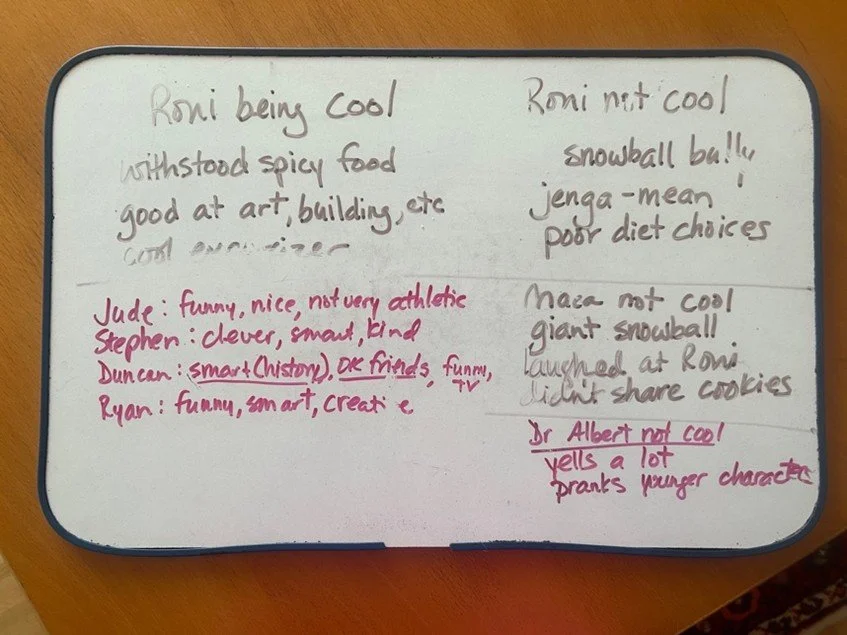 Roni being cool
withstood spicy food
good at art, building, etc
cool
Jude: funny, nice, not very athletic
Stephen: clever, smart, kind
Duncan: smart (history), OK friends, funny,
TV
Ryan: funny, smart, creati e
Roni not cool
snowball bully
jenga - mean
poor diet choices
Maca not cool
giant snowball
laughed at Roni
didn't share cookies
Dr Albert not cool
yells a lot
pranks younger characters